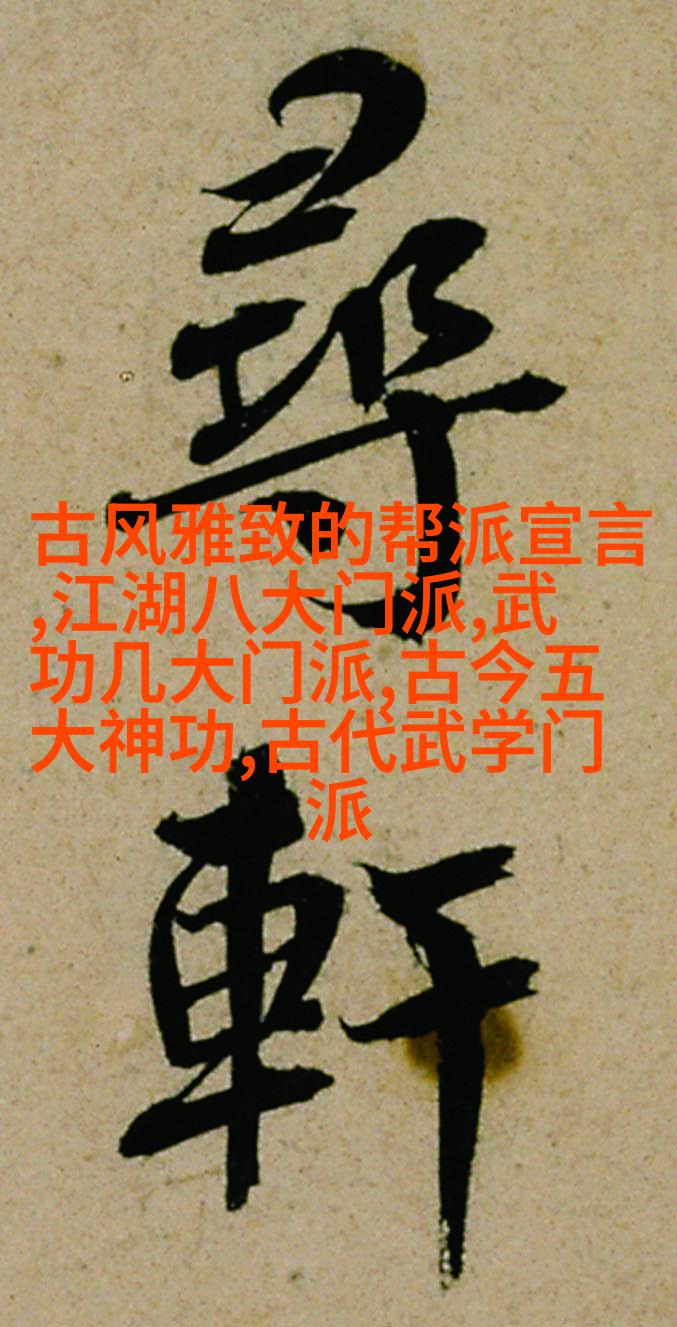 尋
軒
古风雅致的帮派宣言
,江湖八大门派,武
功几大门派,古今五
大神功,古代武学门
派